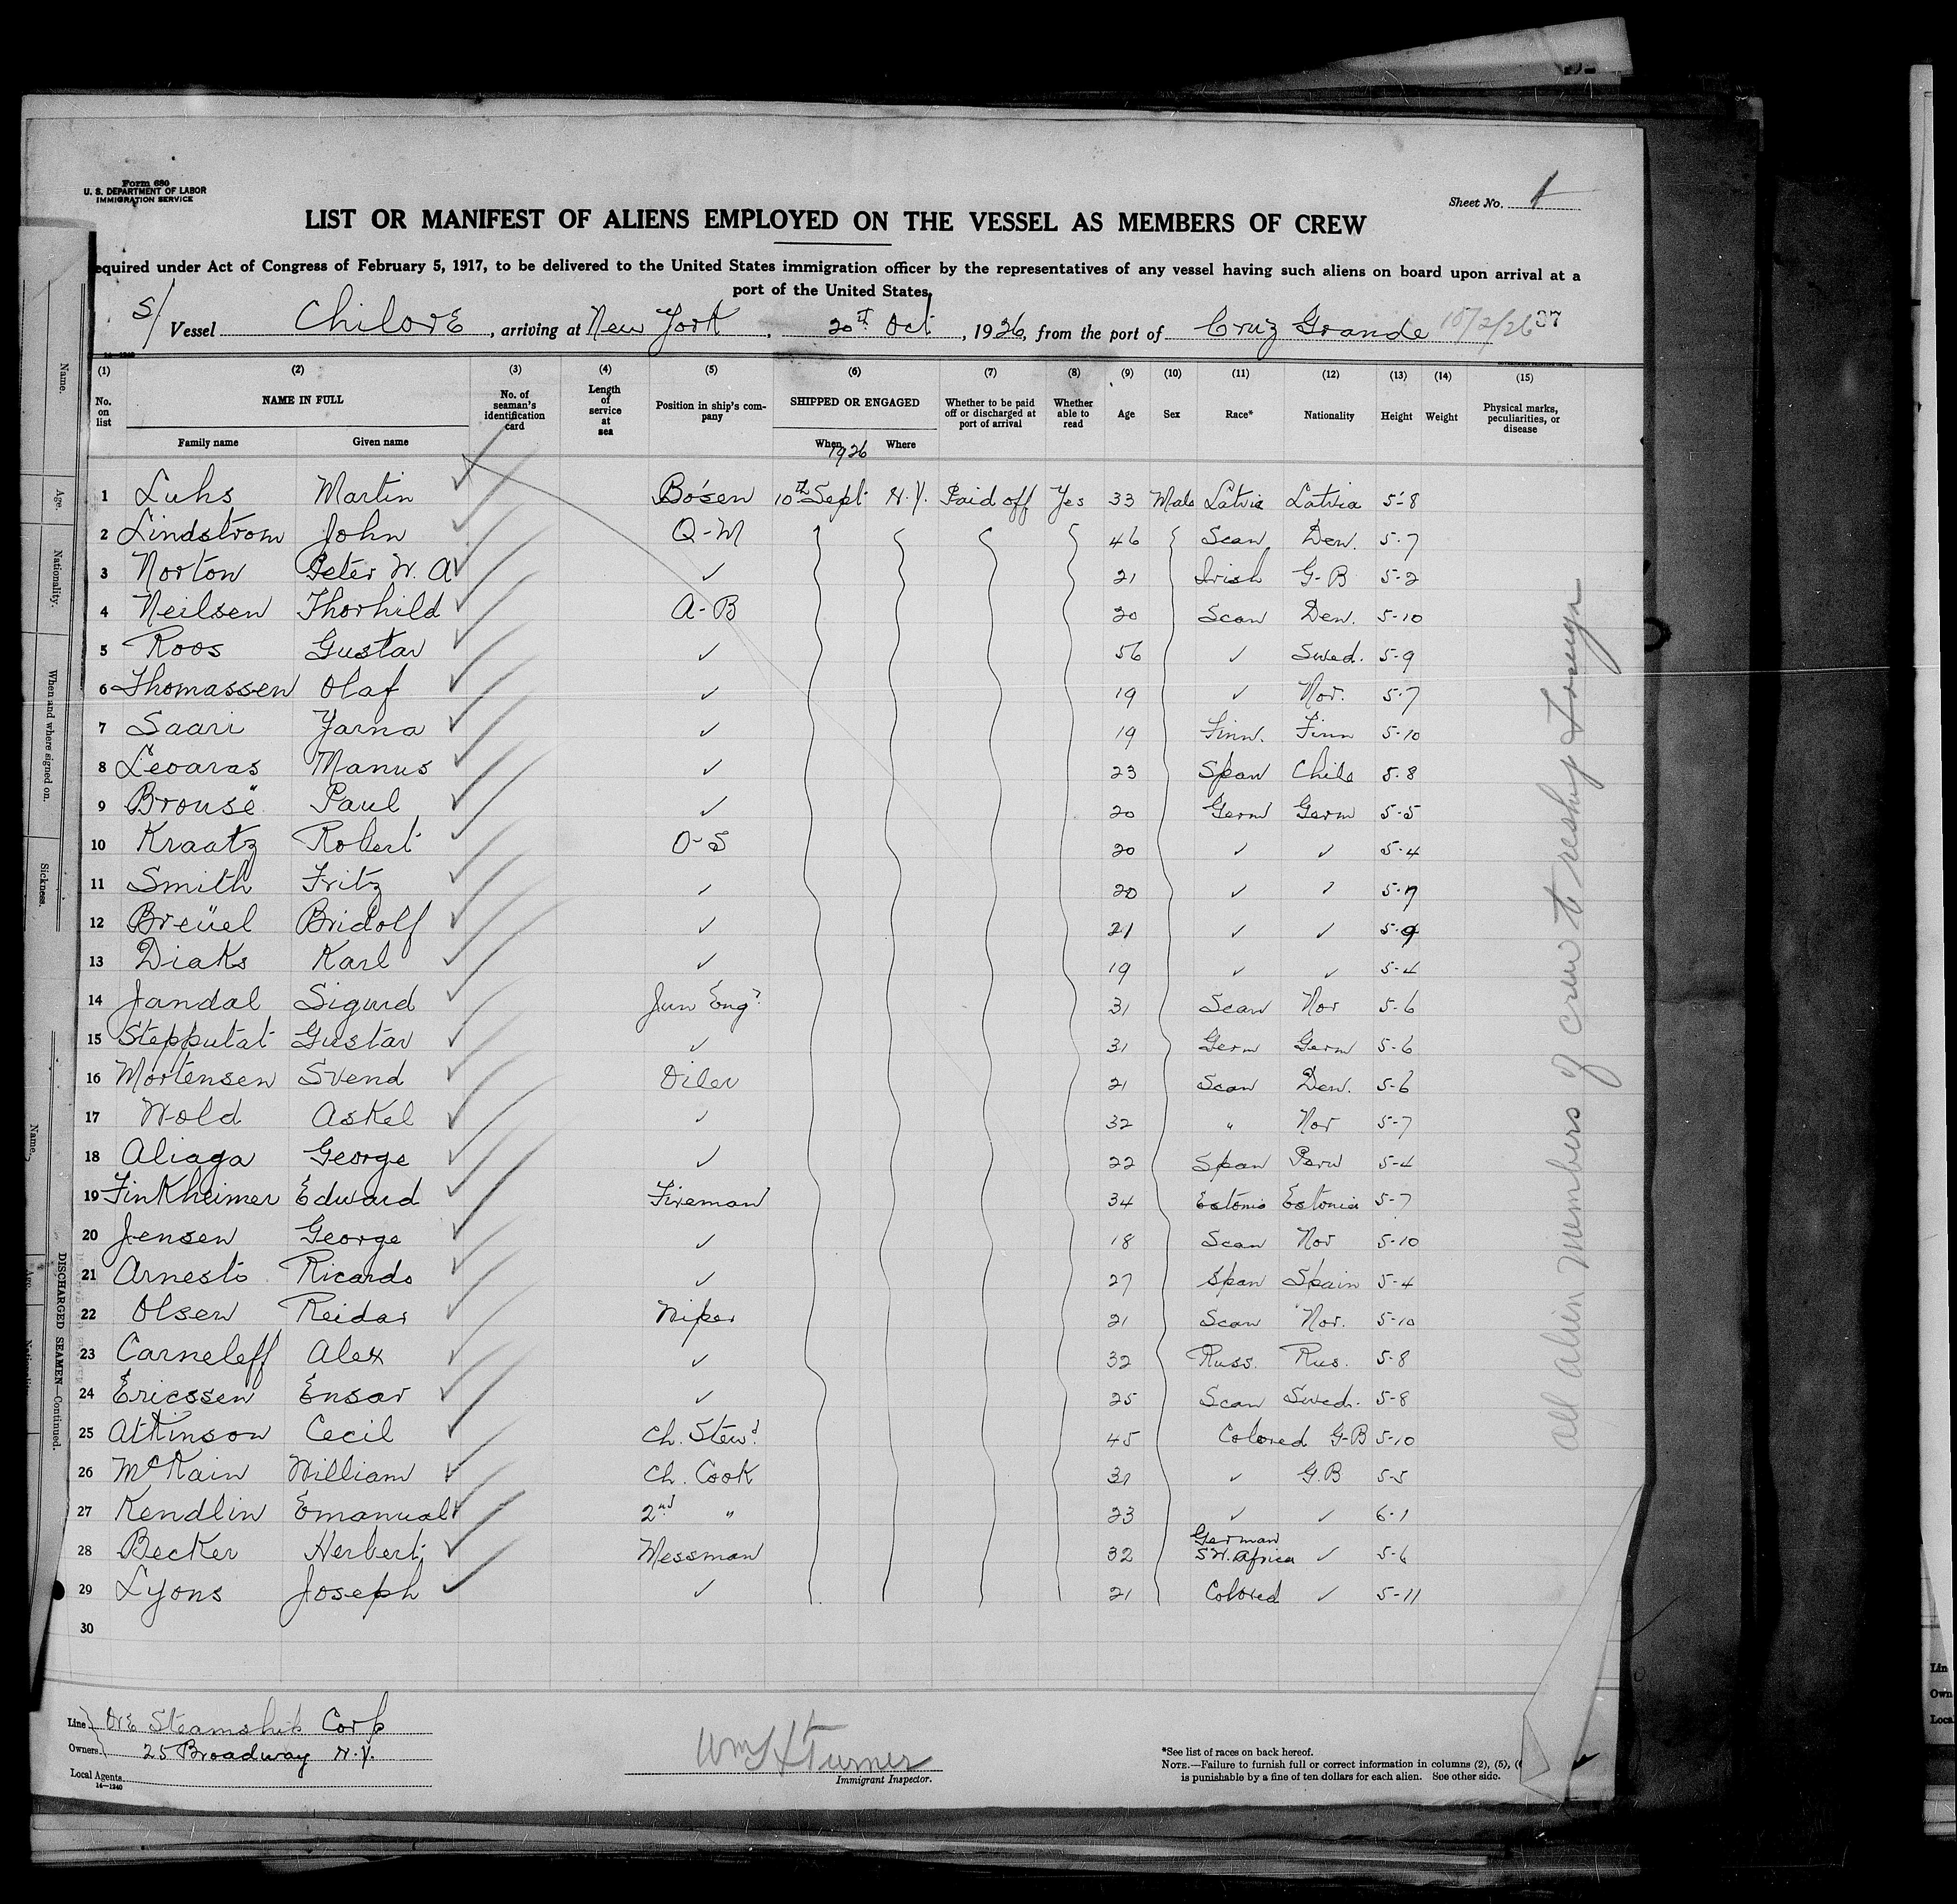 Form 680
U. S. DEPARTMENT OF LABOR
IMMIGRATION SERVICE
Sheet No.
LIST OR MANIFEST OF ALIENS EMPLOYED ON THE VESSEL AS MEMBERS OF CREW
equired under Act of Congress of February 5, 1917, to be delivered to the United States immigration officer by the representatives of any vessel having such aliens on board upon arrival at a
port of the United States
S/ Vessel ChilorE, arriving at New York, 20th Oct, 1926, from the port of Cruz Grande 37
14—1240
(1) (2) (3) (4) (5) (6) (7) (8) (9) (10) (11) (12) (13) (14) (15)
No. on list NAME IN FULL No. of seaman's identification card Length of service at sea Position in ship's company SHIPPED OR ENGAGED Whether to be paid off or discharged at port of arrival Whether able to read Age Sex Race* Nationality Height Weight Physical marks, peculiarities, or disease
Family name Given name When Where
1926
1 Luhs Martin ✓ Bo'sen 10th Sept N.Y. Paid off Yes 33 Male Latvia Latvia 5-8
2 Lindstrom John ✓ Q-M 46 Scan Den. 5-7
3 Norton Peter W. A ✓ ✓ 21 Irish G-B 5-2
4 Neilsen Thorhild ✓ A-B 20 Scan Den. 5-10
5 Roos Gustav ✓ ✓ 56 ✓ Swed. 5-9
6 Thomassen Olaf ✓ ✓ 19 ✓ Nor. 5-7
7 Saari Yarna ✓ ✓ 19 Finn. Finn 5-10
8 Leoaras Manus ✓ ✓ 23 Span Chile 5-8
9 Brousë Paul ✓ ✓ 20 Germ Germ 5-5
10 Kraatz Robert ✓ O-S 20 ✓ ✓ 5-4
11 Smith Fritz ✓ ✓ 20 ✓ ✓ 5-7
12 Breüel Bridolf ✓ ✓ 21 ✓ ✓ 5-9
13 Diaks Karl ✓ ✓ 19 ✓ ✓ 5-4
14 Jandal Sigurd ✓ Jun Engr 31 Scan Nor 5-6
15 Stepputat Gustav ✓ ✓ 31 Germ Germ 5-6
16 Mortensen Svend ✓ Oiler 21 Scan Den. 5-6
17 Wold Askel ✓ ✓ 32 " Nor 5-7
18 Aliaga George ✓ ✓ 22 Span Peru 5-4
19 Finkheimer Edward ✓ Fireman 34 Estonia Estonia 5-7
20 Jensen George ✓ ✓ 18 Scan Nor 5-10
21 Arnesto Ricardo ✓ ✓ 27 Span Spain 5-4
22 Olsen Reidar ✓ Wiper 21 Scan Nor. 5-10
23 Carneleff Alex ✓ ✓ 32 Russ. Rus. 5-8
24 Ericssen Ensar ✓ ✓ 25 Scan Swed. 5-8
25 Atkinson Cecil ✓ Ch. Stewd 45 Colored G-B 5-10
26 McKain William ✓ Ch. Cook 31 ✓ G.B 5-5
27 Kendlin Emanual ✓ 2nd " 23 ✓ ✓ 6-1
28 Becker Herbert ✓ Messman 32 German S.W. Africa ✓ 5-6
29 Lyons Joseph ✓ ✓ 21 Colored ✓ 5-11
30
all alien members of crew to reship foreign
Line OrE Steamship Corp
Owners 25 Broadway N.Y.
Local Agents
14—1240
Wm H Turner
Immigrant Inspector.
*See list of races on back hereof.
NOTE.—Failure to furnish full or correct information in columns (2), (5), (
is punishable by a fine of ten dollars for each alien. See other side.
Name.
Age.
Nationality.
When and where signed on.
Sickness.
Name.
Age.
DISCHARGED SEAMEN—Continued.
Lin
Own
Loca